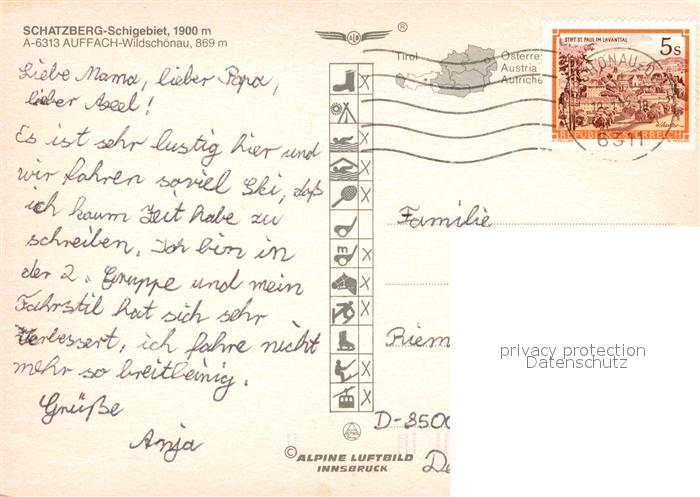 SCHATZBERG-Schigebiet, 1900 m
A-6313 AUFFACH-Wildschönau, 869 m
Liebe Mama, lieber Papa,
lieber Axel!
Es ist sehr lustig hier und
wir fahren soviel Ski, daß
ich kaum Zeit habe zu
schreiben. Ich bin in
der 2. Gruppe und mein
Fahrstil hat sich sehr
verbessert, ich fahre nicht
mehr so breitbeinig.
Grüße
Anja
®
Tirol
Österre
Austria
Autriche
STIFT ST. PAUL IM LAVANTTAL
5s
REPUBLIK ÖSTERREICH
6311
m
Familie
Riem
D-8500
privacy protection
Datenschutz
© ALPINE LUFTBILD
INNSBRUCK